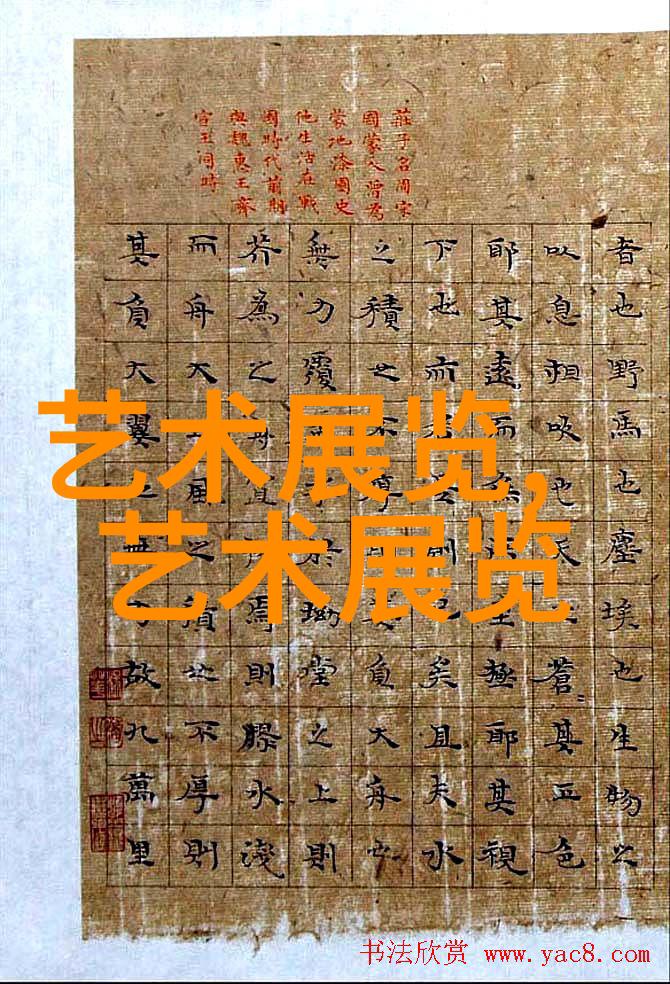 莊子名周宋
國蒙人曾為
蒙地漆園史
他生活在戰
國時代前期
與魏惠王齊
宣王同時
者也野馬也塵埃也生物之
以息相吹也天之蒼=其正色
耶其遠而無所至極耶其視
下也而若是則已矣且夫水
之積也不厚則其負大舟也
無力覆杯水於坳堂之上則
芥為之舟置杯焉則膠水淺
而舟大也風之積也不厚則
其負大翼也無力故九萬里
艺术展览,
艺术展览
书法欣赏 www.yac8.com